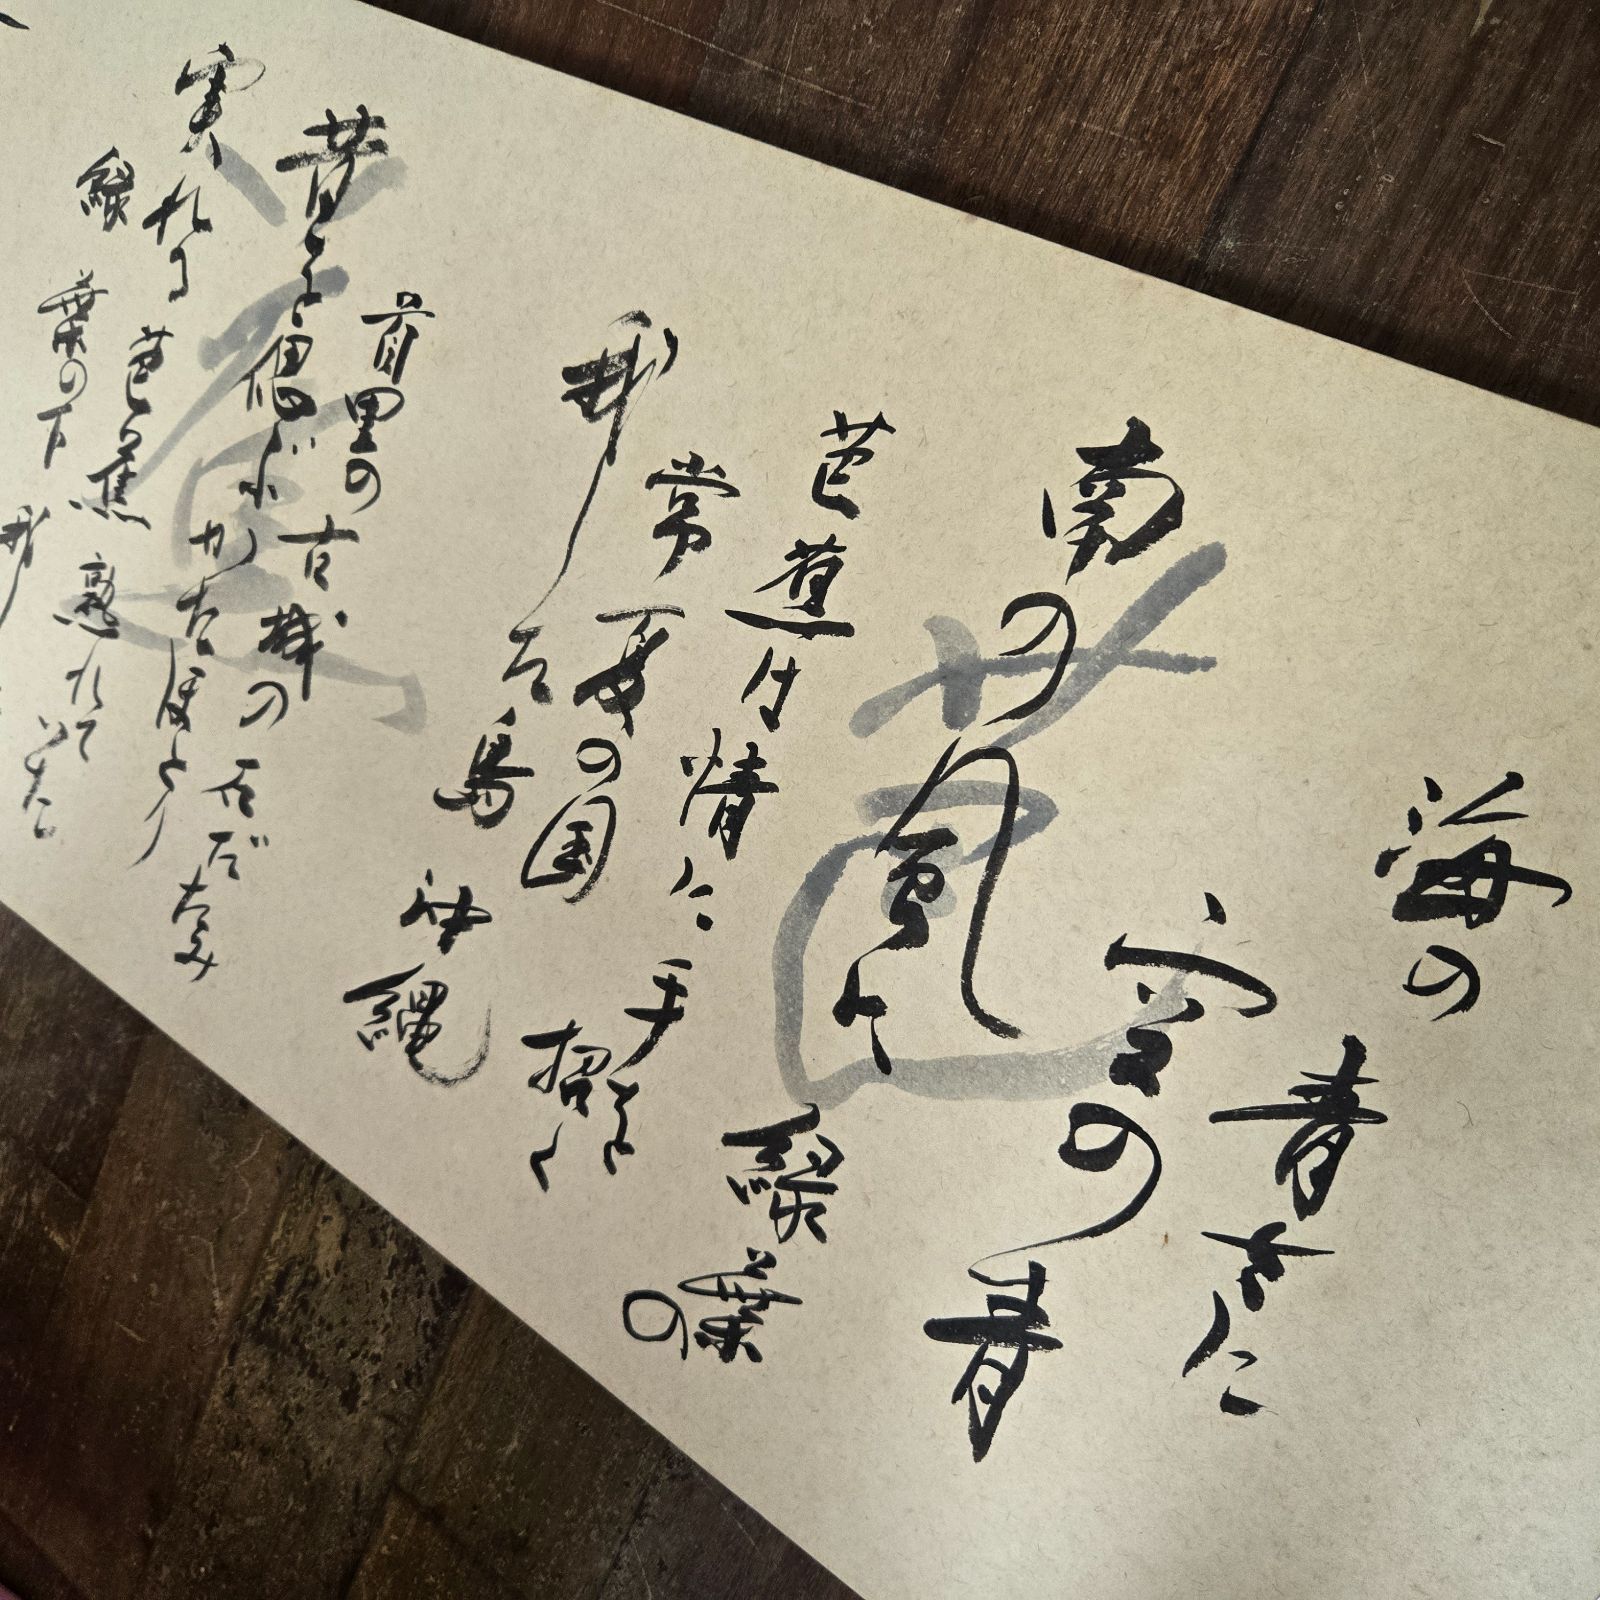 海の青さに
空の青
南の風に
緑葉の
芭蕉は情に
手を招く
常夏の国
我した島沖縄
首里の古城の石だたみ
昔を偲ぶかたほとり
実れる芭蕉熟れていた
緑葉の下
我